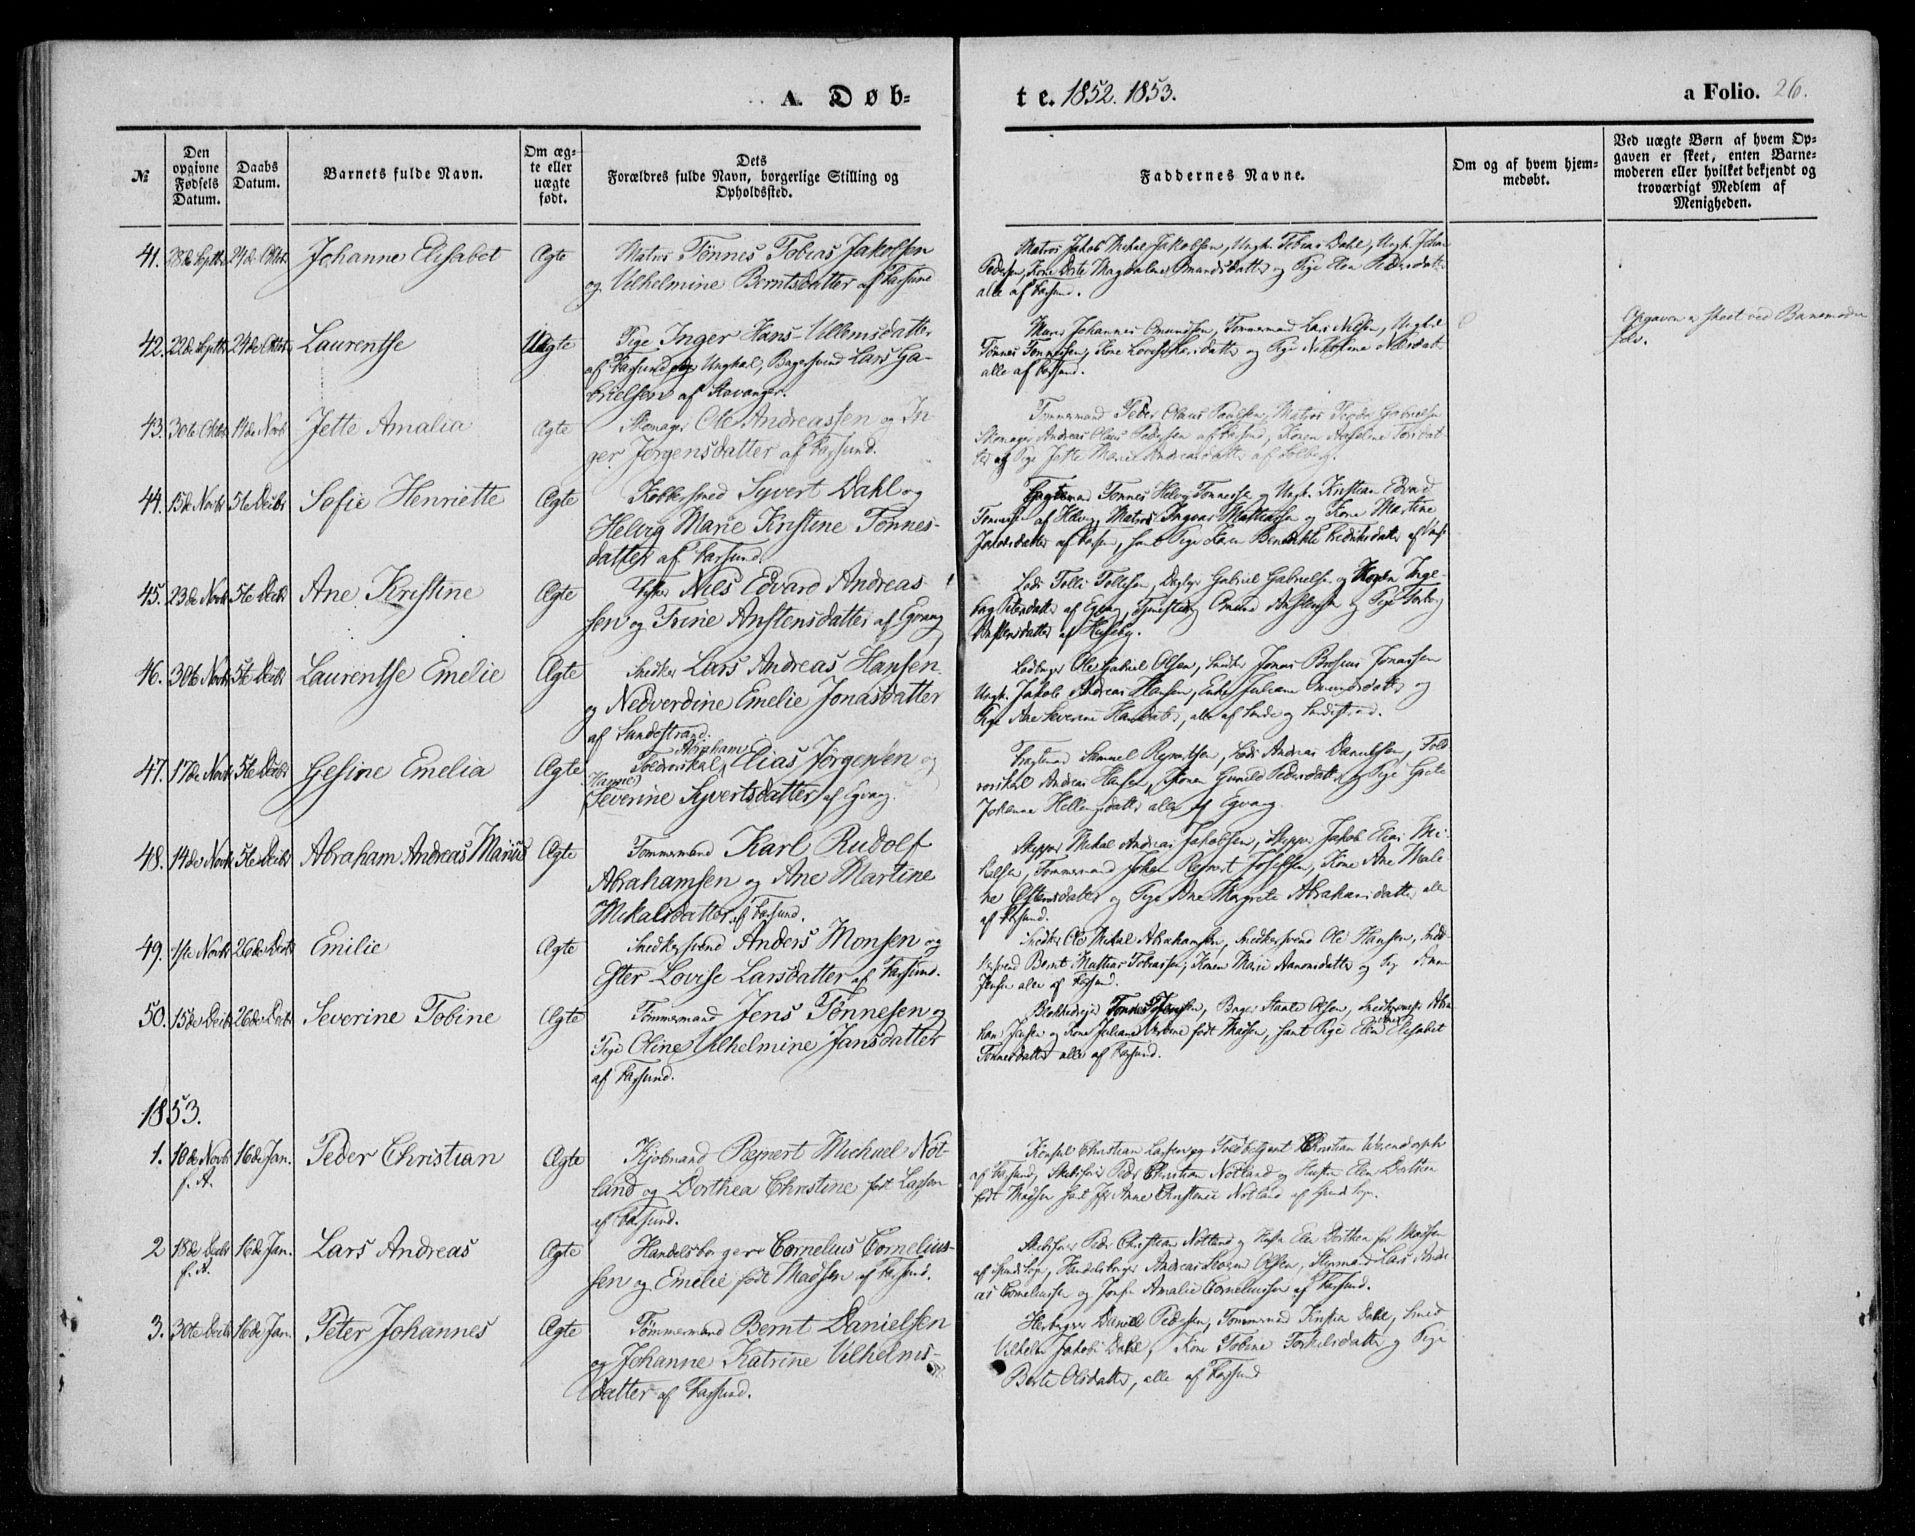 A. Døb-
te. 1852. 1853.
a Folio. 26.
№
Den opgivne Fødsels Datum.
Daabs Datum.
Barnets fulde Navn.
Om ægte eller uægte født.
Dets Forældres fulde Navn, borgerlige Stilling og Opholdssted.
Faddernes Navne.
Om og af hvem hjemmedøbt.
Ved uægte Børn af hvem Opgaven er skeet, enten Barnemoderen eller hvilket bekjendt og troværdigt Medlem af Menigheden.
41. 28de Septbr 24de Oktbr Johanne Elisabet Ægte Matros Tønnes Tobias Jakobsen
og Vilhelmine Berntsdatter af Farsund
Matros Jakob Mikal Jakobsen, Ungk. Tobias Dahl, Ungk. Johan
Pedersen, Kone Berte Magdalene Amundsdatter og Pige Elen Pedersdatter
alle af Farsund.
42. 22de Septbr 24de Oktbr Laurentse Uægte Pige Inger Hans-Villumsdatter
af Farsund og Ungkal, Bagersvend Lars Ga-
brielsen af Stavanger.
Johannes Omundsen, Tømmermand Lars Nilsen, Ungk.
Tønnes Tønnesen, Kone Lovise Larsdatter og Pige
alle af Farsund.
Opgaven er skeet ved Barnemoderen
selv.
43. 30te Oktbr 14de Novbr Jette Amalia Ægte Skomager Ole Andreassen og In-
ger Jørgensdatter af Farsund.
Tømmermand Peder Olaus Paulsen, Matros Peder Gabrielsen
Skomager Andreas Olaus Pedersen af Farsund, Konen
og Pige Jette Marie Andreasdatter af
44. 15de Novbr 5te Decbr Sofie Henriette Ægte Kobbersmed Syvert Dahl og
Helvig Marie Kristine Tønnes-
datter af Farsund.
Tønnes Helvig Tønnesen og Ungk. Kristian Edvard
Tønnesen af Matros Ingvar Mathiassen og Kone Martine
Jakobsdatter af Farsund, samt Pige Karen Benedikte Fredriksdatter af
45. 23de Novbr 5te Decbr Ane Kristine Ægte Fisker Nils Edvard Andreas-
sen og Trine Anstensdatter af Egvaag
Lods Tolli Tollisen, Gabriel Gabrielsen og Konen Inge-
borg af Egvaag, Omund Anstensen og Pige
Anstensdatter af Huseby.
46. 30te Novbr 5te Decbr Laurentse Emelie Ægte Snedker Lars Andreas Hansen
og Nedverdine Emelie Jonasdatter
af Sundestrand.
Ole Gabriel Olsen, Snedker Jonas Brosius Jonassen
Ungk. Jakob Andreas Hansen, Enke Juliane Omundsdatter og
Pige Ane Severine Hansdatter, alle af Sande og Sundestrand.
47. 17de Novbr 5te Decbr Gesine Emelia Ægte Toldroerskal Abraham Elias Jørgensen og
Hanne Severine Syvertsdatter af Egvaag.
Samuel Reiertsen, Lods Andreas Danielsen, Told-
roerskal Andreas Hansen, Konen Gunild Pedersdatter og Pige Grete
Johanne Hellesdatter alle af Egvaag.
48. 14de Novbr 5te Decbr Abraham Andreas Marius Ægte Tømmermand Karl Rudolf
Abrahamsen og Ane Martine
Mikalsdatter af Farsund.
Skipper Mikal Andreas Jakobsen, Skipper Jakob Elias Mi-
kalsen, Tømmermand Johan Reinert Josefsen, Kone Ane Male-
ne Ostensdatter og Pige Ane Margrete Abrahamsdatter, alle
af Farsund.
49. 1ste Novbr 26de Decbr Emilie Ægte Snedkersvend Anders Monsen og
Ester Lovise Larsdatter af Farsund.
Snedker Ole Mikal Abrahamsen, Snedkersvend Ole Hansen, Sned-
kersvend Bernt Mathias Tobiassen, Konen Marie Aanonsdatter og Pige
Jensen alle af Farsund.
50. 15de Decbr 26de Decbr Severine Tobine Ægte Tømmermand Jens Tønnesen og
Pige Oline Vilhelmine Jansdatter
af Farsund.
Blokkedreier Tønnes Bager Staale Olsen,
Jensen og Kone Juliane født Madsen, samt Pige Elen Elisabet
Tønnesdatter alle af Farsund.
1853.
1. 10de Novbr f. A. 16de Jan. Peder Christian Ægte Kjøbmand Reinert Michael Not-
land og Dorthea Christine født Lassen
af Farsund.
Konsul Christian Lassen og Toldbetjent Christian
af Farsund, Skibsfører Peder Christian Notland og Hustru Elen Dorthea
født Madsen samt Jfr Anne Christence Notland af Spinds Sogn.
2 18de Decbr f. A. 16de Jan. Lars Andreas Ægte Handelsborger Cornelius Cornelius-
sen og Emelie født Madsen af Farsund.
Skibsfører Peder Christian Notland og Hustru Elen Dorthea født Madsen
af Spinds Sogn, Handelsborger Andreas Severin Olsen, Styrmand Lars Andre-
as Corneliussen og Jomfru Amalie Corneliussen af Farsund.
3. 30te Decbr 16de Jan. Peter Johannes Ægte Tømmermand Bernt Danielsen
og Johanne Katrine Vilhelms-
datter af Farsund.
Daniel Pedersen, Tømmermand Dahl, Smed
Vilhelm Jakob Dahl, Kone Tobine Torkelsdatter og Pige
Berte Olsdatter, alle af Farsund